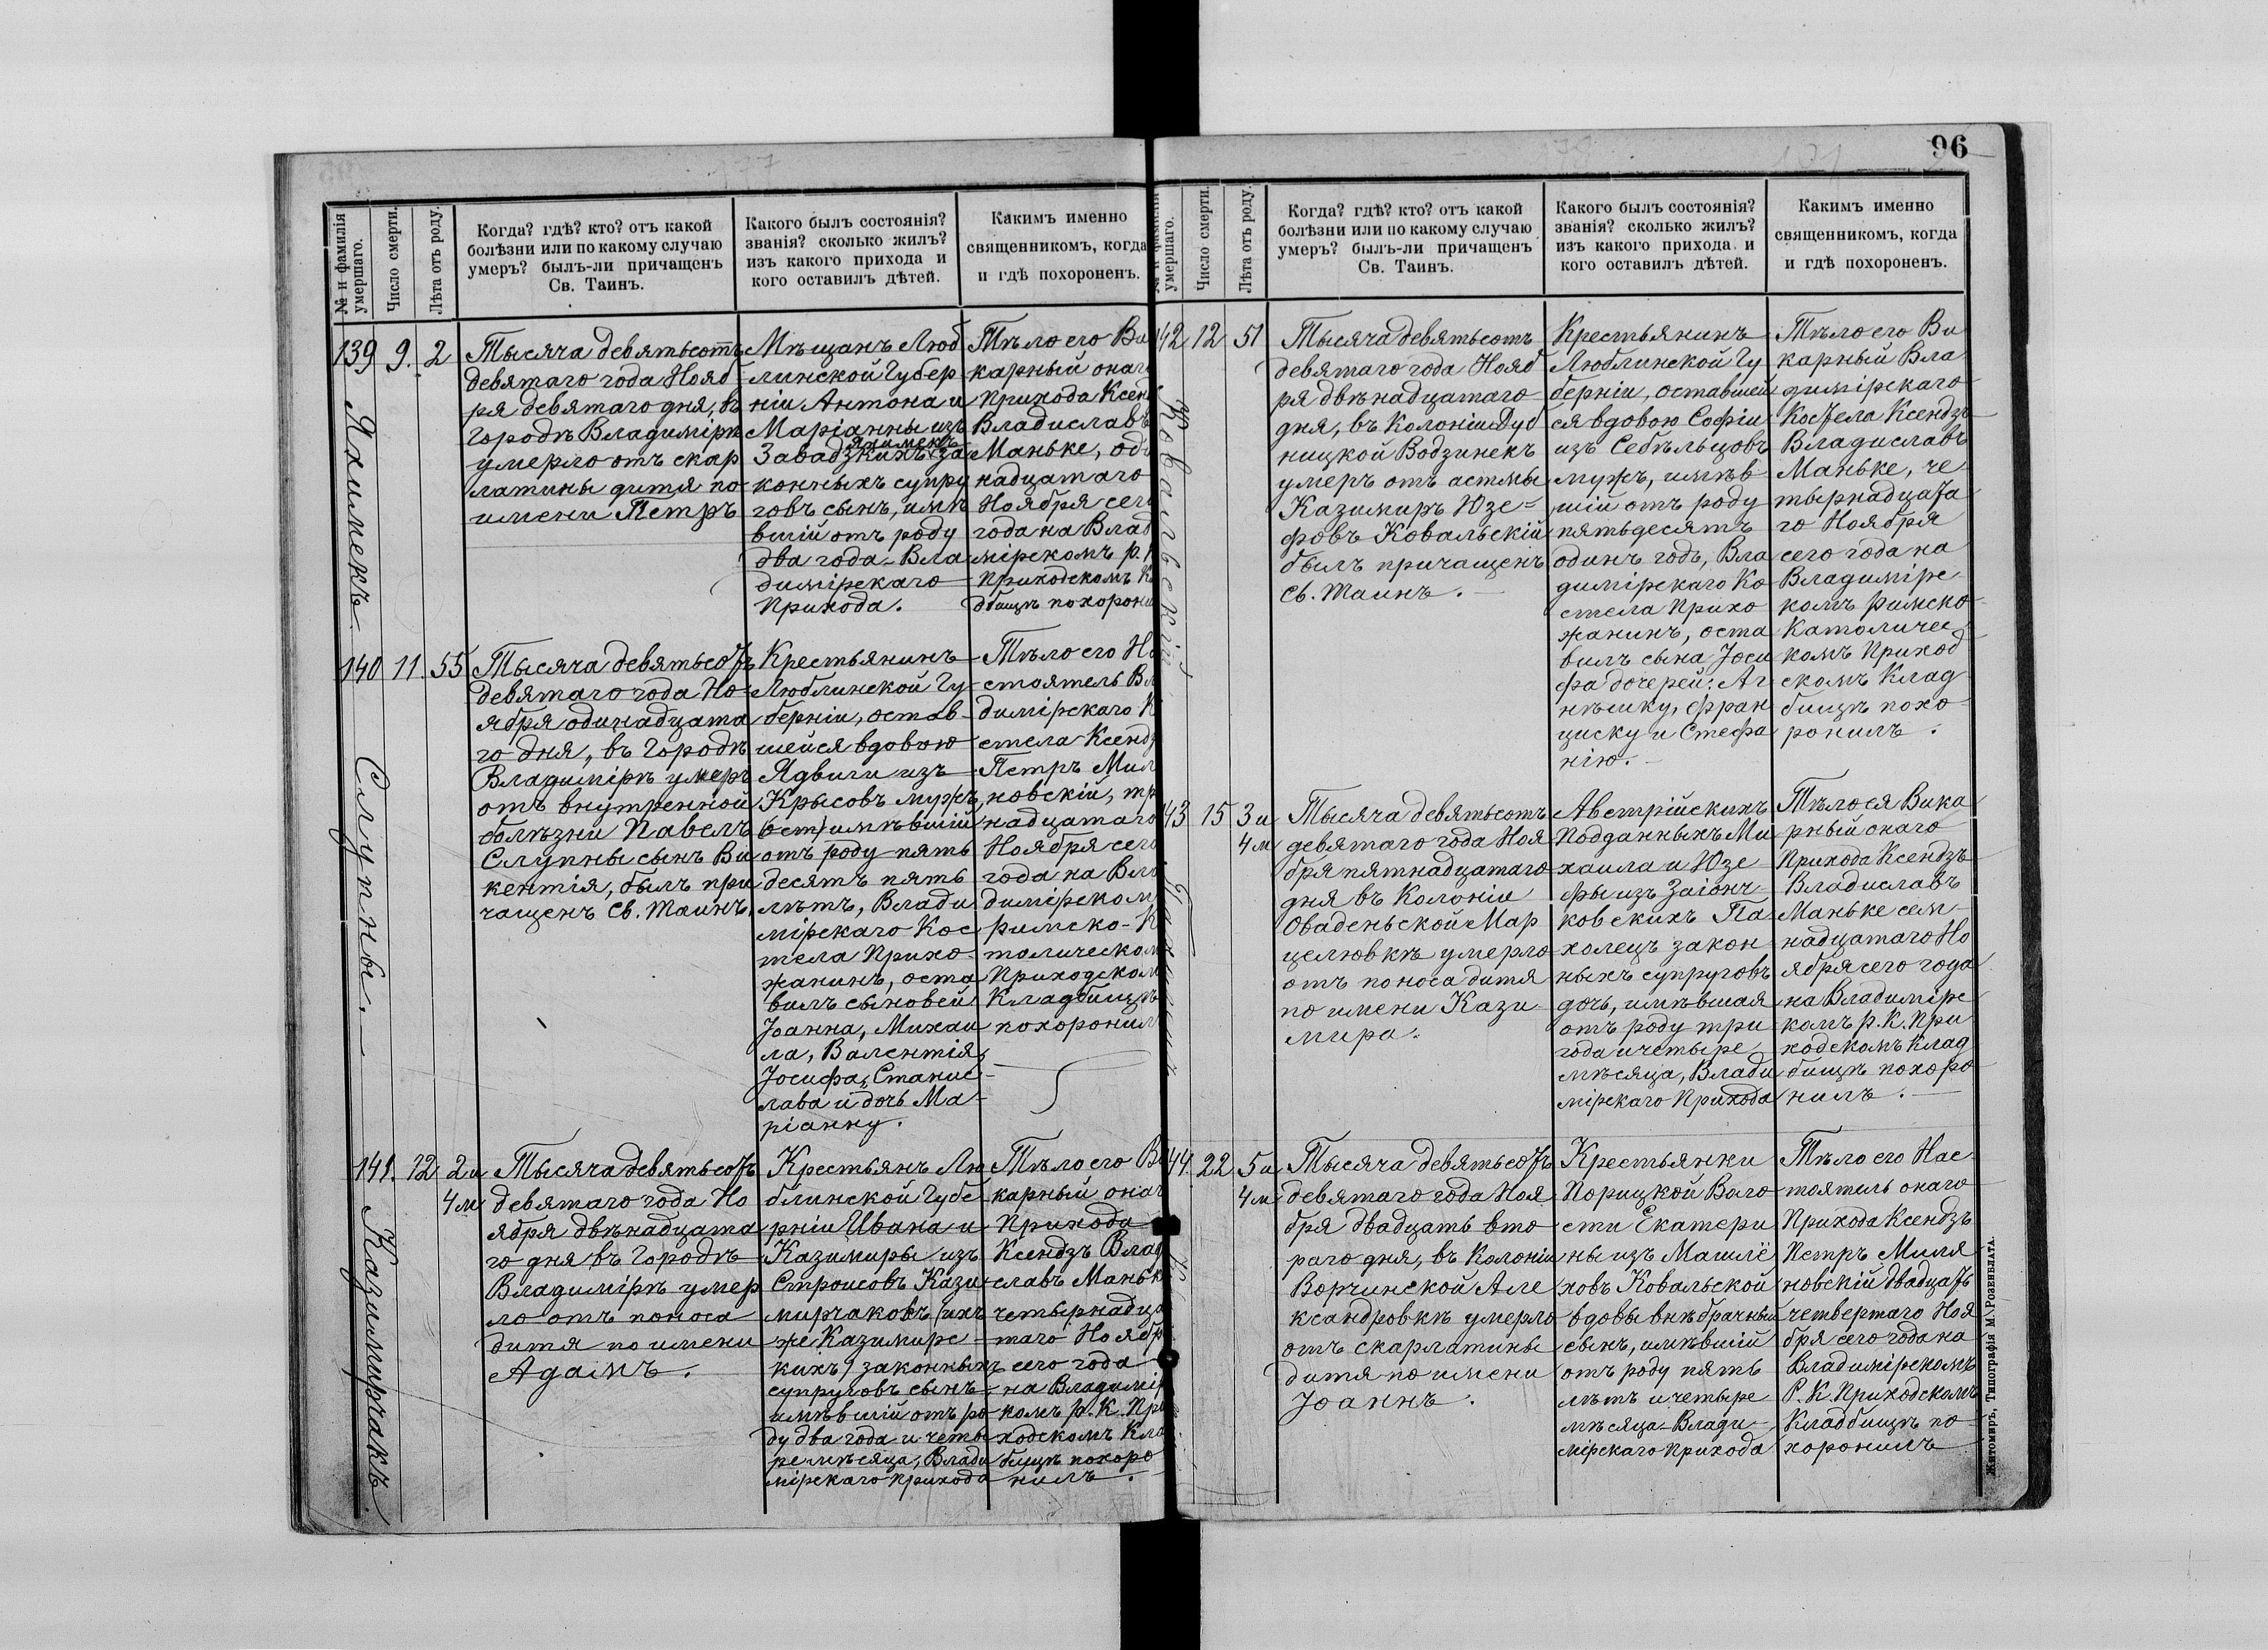 96
№ и фамилія умершаго.
Число смерти.
Лѣта отъ роду.
Когда? гдѣ? кто? отъ какой
болѣзни или по какому случаю
умеръ? былъ-ли причащенъ
Св. Таинъ.
Какого былъ состоянія?
званія? сколько жилъ?
изъ какого прихода и
кого оставилъ дѣтей.
Какимъ именно
священникомъ, когда
и гдѣ похороненъ.
139
Яхимекъ
9.
2
Тысяча девятьсотъ
девятаго года Нояб
ря девятаго дня, въ
Городѣ Владимірѣ
умерло отъ скар
латины дитя по
имени Петръ
Мѣщанъ Люб
линской Губер
ніи Антона и
Маріанны изъ
Завадзкихъ за
конныхъ супру
говъ сынъ, имѣ
вшій отъ роду
два года Вла
димірскаго
Прихода.
Тѣло его Ви
карный онаг
Прихода Ксен
Владиславъ
Маньке, оди
надцатаго
Ноября сего
года на Влад
мірскомъ р.
Приходскомъ К
дбищѣ похорони
140
Слупны.
11.
55
Тысяча девятьсотъ
девятаго года Но
ября одинадцата
го дня, въ Городѣ
Владимірѣ умеръ
отъ внутренной
болѣзни Павелъ
Слупны сынъ Ви
кентія, былъ при
чащенъ Св. Таинъ.
Крестьянинъ
Люблинской Гу
берніи, остав
шейся вдовою
Ядвиги изъ
Крысовъ мужъ,
имѣвшій
отъ роду пять
десятъ пять
лѣтъ, Влади
мірскаго Кос
тела Прихо
жанинъ, оста
вилъ сыновей
Іоанна, Михаи
ла, Валентія,
Іосифа, Станис
лава и дочь Ма
ріанну.
Тѣло его На
стоятель Вл
димірскаго К
стела Ксендз
Петръ Мил
новскій, тр
надцатаго
Ноября сего
года на Вла
димірском
римско-К
толическом
Приходском
Кладбищѣ
похоронил
141.
Казимирчакъ
12
2 и
4 м
Тысяча девятьсотъ
девятаго года Но
ября двѣнадцата
го дня въ Городѣ
Владимірѣ умер
ло отъ поноса
дитя по имени
Адамъ.
Крестьянъ Лю
блинской Губе
рніи Ивана и
Казимиры изъ
Строисовъ Кази
мирчаковъ (ихъ
же Казимирс
кихъ) законныхъ
супруговъ сынъ
имѣвшій отъ ро
ду два года и четы
ре мѣсяца, Влади
мірскаго прихода
Тѣло его Ви
карный онаг
Прихода
Ксендзъ Влад
славъ Маньк
четырнадца
таго Ноябр
сего года
на Владимір
комъ р. К. При
ходскомъ Кла
бищѣ похоро
нилъ.
№ и фамилія умершаго.
Число смерти.
Лѣта отъ роду.
Когда? гдѣ? кто? отъ какой
болѣзни или по какому случаю
умеръ? былъ-ли причащенъ
Св. Таинъ.
Какого былъ состоянія?
званія? сколько жилъ?
изъ какого прихода и
кого оставилъ дѣтей.
Какимъ именно
священникомъ, когда
и гдѣ похороненъ.
42
Ковальскій
12
51
Тысяча девятьсотъ
девятаго года Нояб
ря двѣнадцатаго
дня, въ Колоніи Дуб
ницкой Водзинекъ
умеръ отъ астмы
Казимиръ Юзе-
фовъ Ковальскій
былъ причащенъ
Св. Таинъ.
Крестьянинъ
Люблинской Гу
берніи, оставшей
ся вдовою Софіи
изъ Себѣльцовъ
мужъ, имѣв
шій отъ роду
пятьдесятъ
одинъ годъ, Вла
димірскаго Ко
стела Прихо
жанинъ, оста
вилъ сына Іоси
фа дочерей: Аг
нѣшку, Фран
циску и Стефа
нію.
Тѣло его Ви
карный Вла
димірскаго
Костела Ксендзъ
Владиславъ
Маньке, че
тырнадцата
го Ноября
сего года на
Владимірс
комъ римско
Католичес
комъ Приход
скомъ Клад
бищѣ похо
ронилъ.
43
15
3 и
4 м
Тысяча девятьсотъ
девятаго года Ноя
бря пятнадцатаго
дня въ Колоніи
Оваденьской Мар
целювкѣ умерло
отъ поноса дитя
по имени Кази
мира.
Австрійскихъ
Подданныхъ Ми
хаила и Юзе
фы изъ Заіонч
ковскихъ Па
холецъ закон
ныхъ супруговъ
дочь, имѣвшая
отъ роду три
года и четыре
мѣсяца, Влади
мірскаго Прихода
Тѣло ея Вика
рный онаго
Прихода Ксендзъ
Владиславъ
Маньке сем
надцатаго Но
ября сего года
на Владимірс
комъ р. К. При
ходскомъ Клад
бищѣ похоро
нилъ.
44.
22
5 и
4 м
Тысяча девятьсотъ
девятаго года Ноя
бря двадцать вто
раго дня, въ Колоніи
Ворчинской Але
ксандровкѣ умерло
отъ скарлатины
дитя по имени
Іоаннъ.
Крестьянки
Порицкой Воло
сти Екатери
ны изъ Машлё
ховъ Ковальской
вдовы внѣбрачный
сынъ, имѣвшій
отъ роду пять
лѣтъ и четыре
мѣсяца Влади
мірскаго Прихода
Тѣло его Нас
тоятель онаго
Прихода Ксендзъ
Петръ Миля
новскій двадцать
четвертаго Ноя
бря сего года на
Владимірскомъ
Р. К. Приходскомъ
Кладбищѣ по
хоронилъ
Житомиръ, Типографія М. Розенблата.